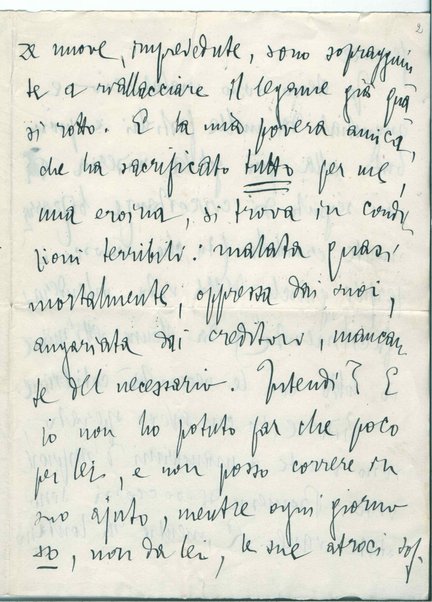 2
ze nuove, imprevedute, sono sopraggiun
te a riallacciare il legame già qua
si rotto. E la mia povera amica,
che ha sacrificato tutto per me,
una eroina, si trova in condi
zioni terribili: malata quasi
mortalmente, oppressa dai suoi,
angariata dai creditori, mancan
te del necessario. Intendi? E
io non ho potuto far che poco
per lei, e non posso correre in
suo ajuto, mentre ogni giorno
so, non da lei, le sue atroci sof-